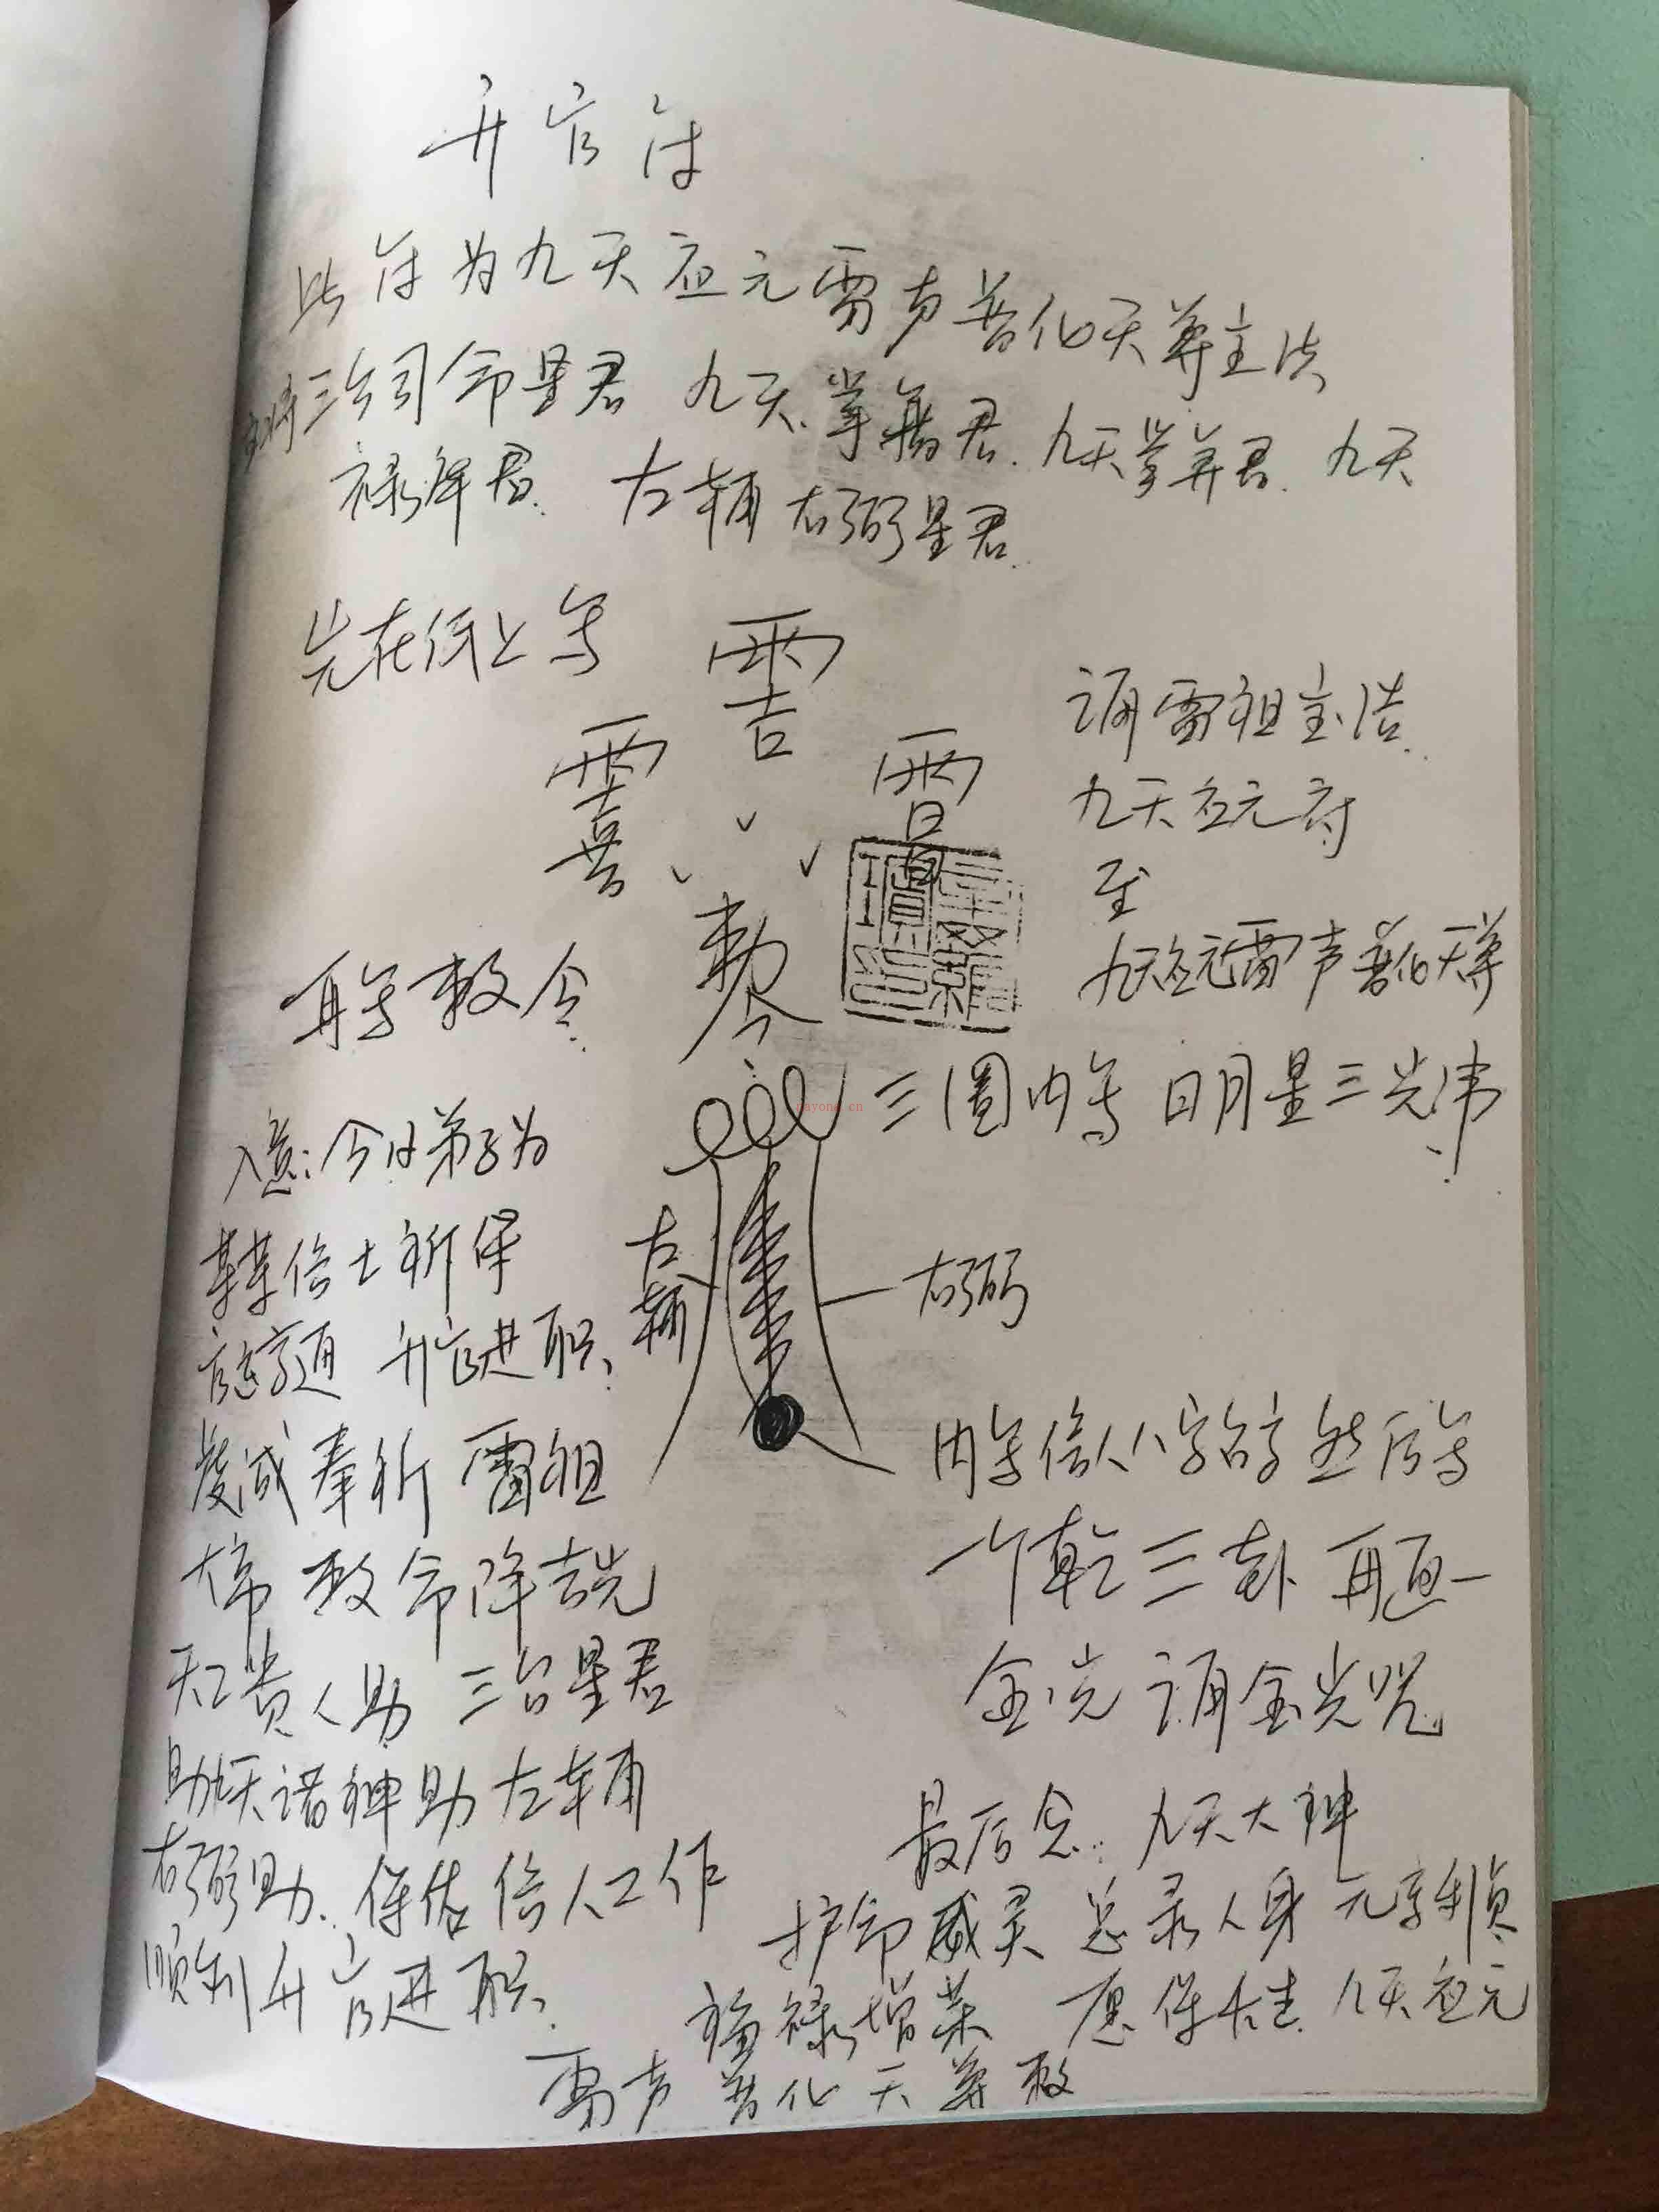 升官符
此符为九天应元雷声普化天尊主法
三台司命星君 九天掌籍君.九天掌算君.九天
禄库君. 左辅右弼星君.
先在纸上写
再写敕令
敕令
诵雷祖宝诰.
九天应元府
至
九天应元雷声普化天尊
三圈内写 日月星三光讳
入意:今日弟子为
某某信士祈保
官运亨通 升官进职、
虔诚奉祈 雷祖
大帝 敕命降吉光
天上贵人助 三台星君
助 九天诸神助 左辅
右弼助. 保佑信人工作
顺利升官进职.
左辅
右弼
内写信人八字名字 然后写
一个乾三卦 再画一
金光 诵金光咒
最后念: 九天大神
护命威灵 总录人身 元亨利贞
福禄增荣 愿保长生 九天应元
雷声普化天尊敕
jiayong.cn